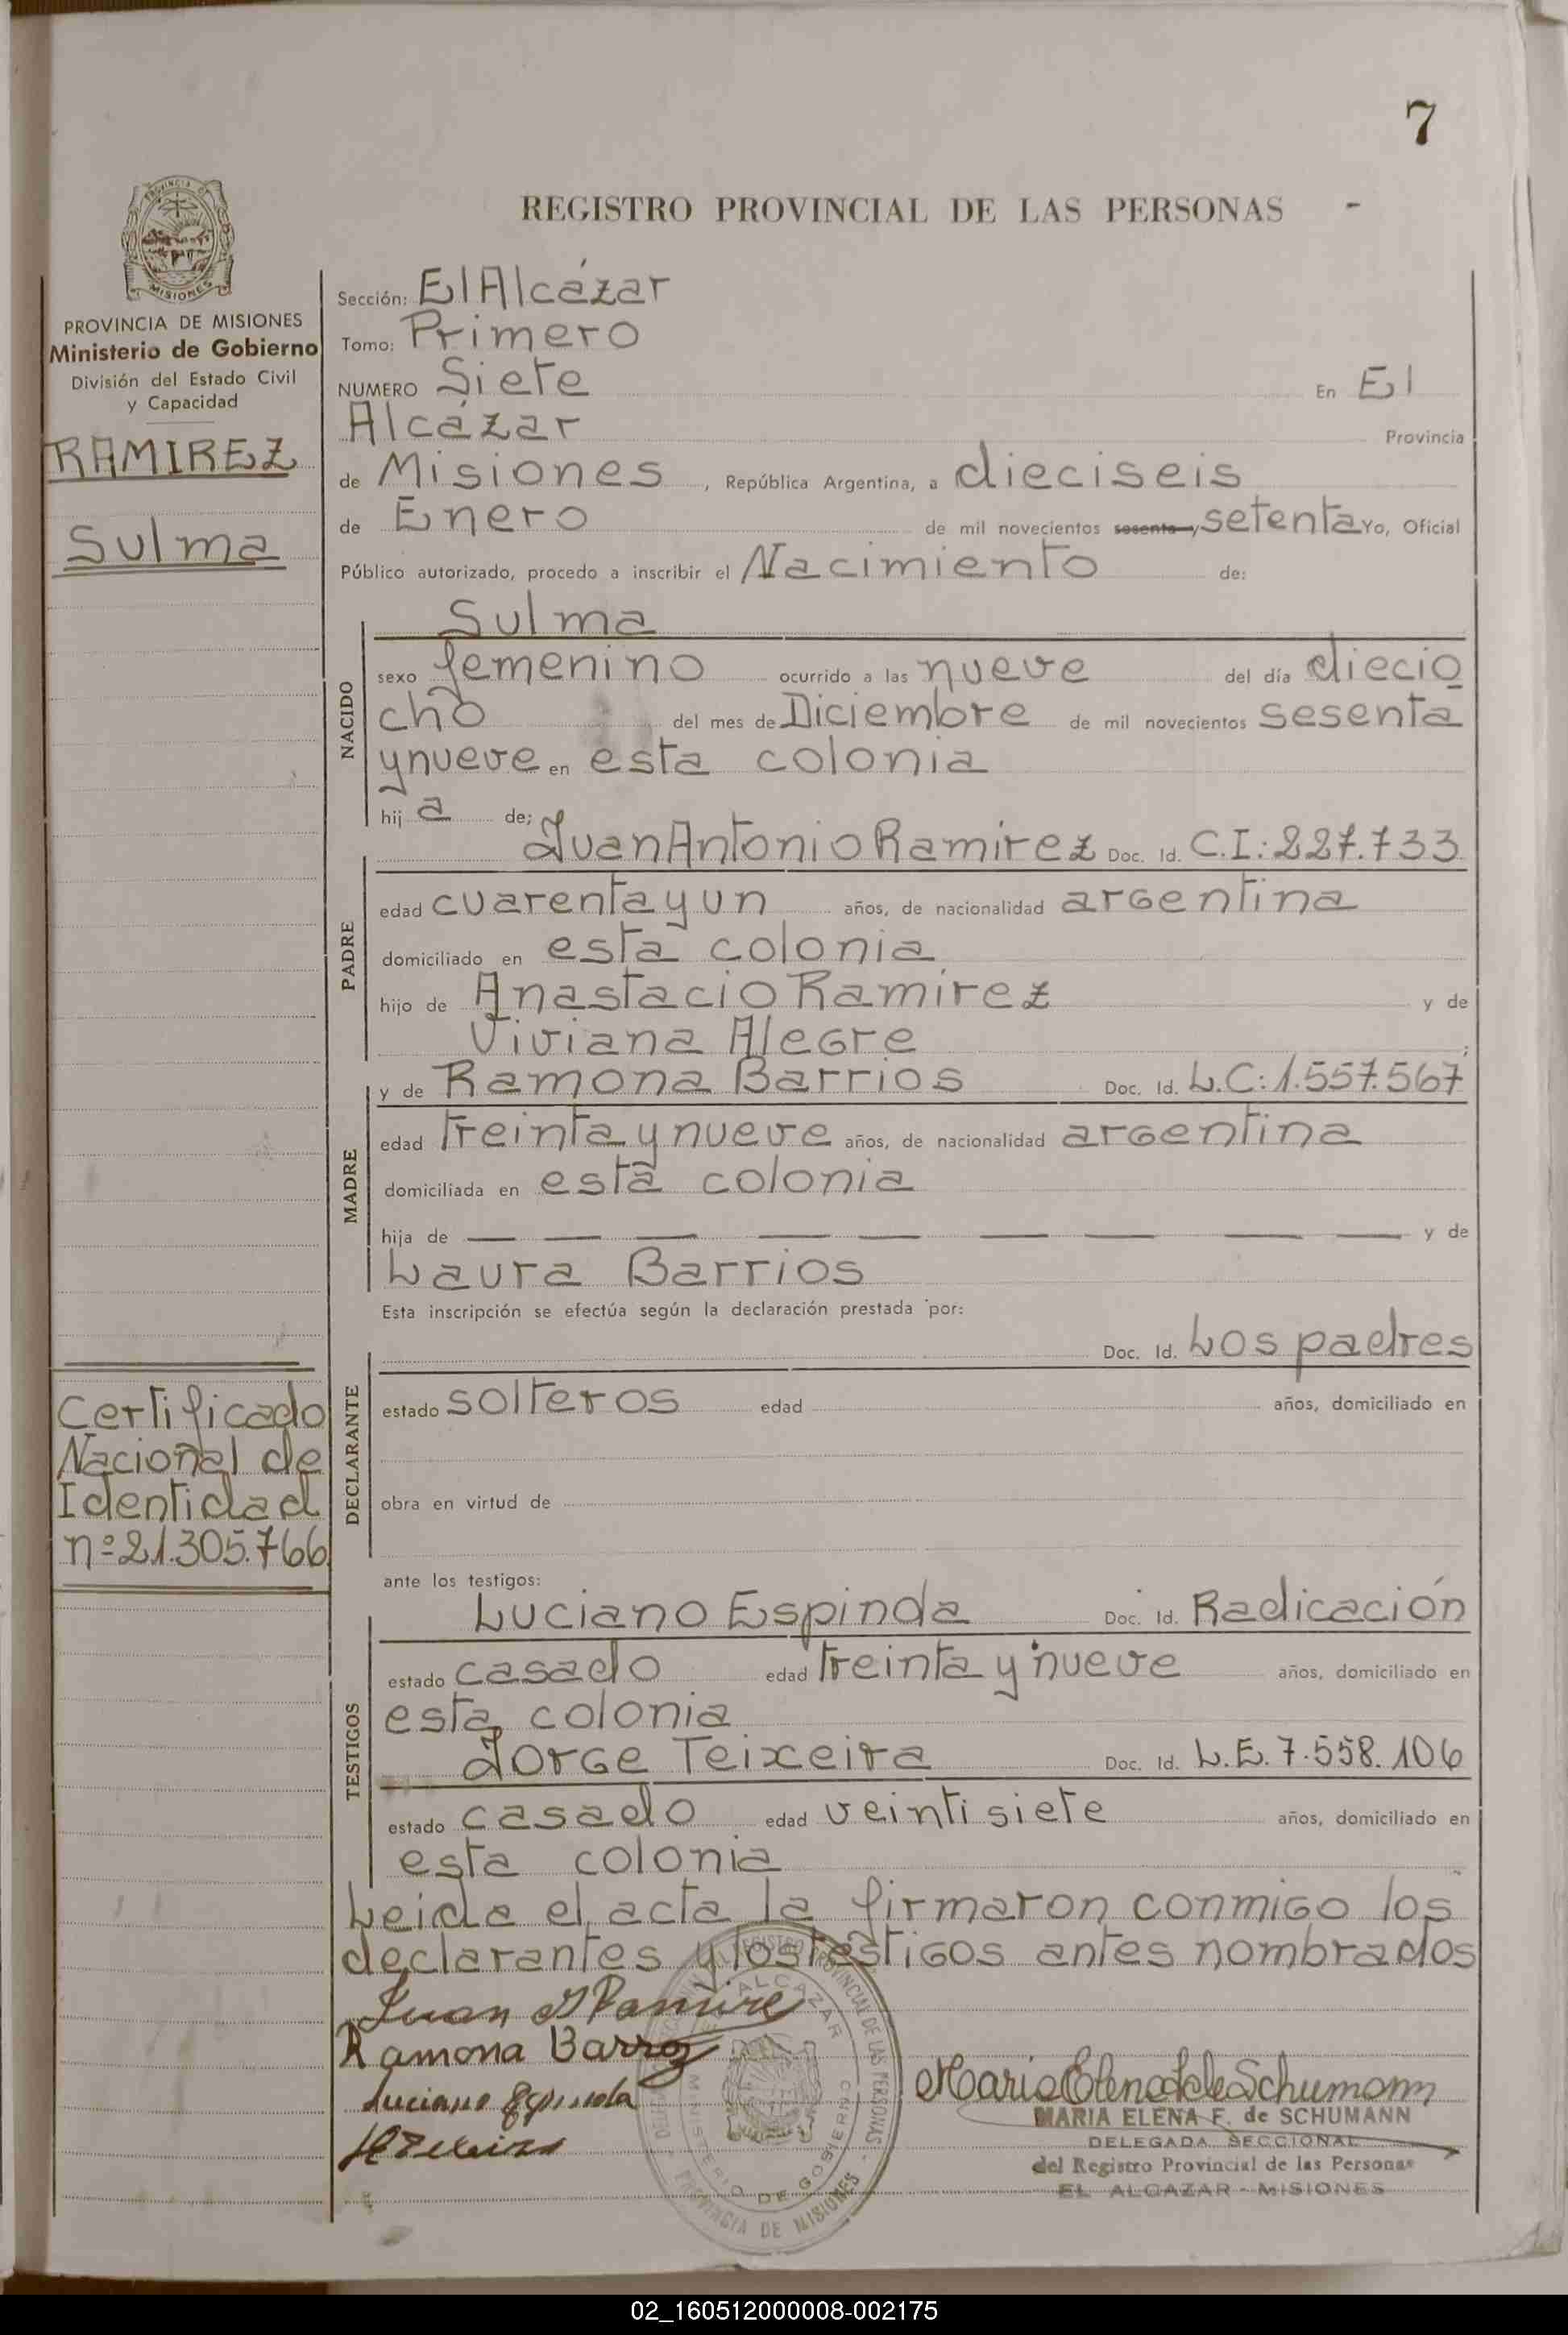 7
REGISTRO PROVINCIAL DE LAS PERSONAS -
PROVINCIA DE MISIONES
Ministerio de Gobierno
División del Estado Civil
y Capacidad
RAMIREZ
Sulma
Certificado
Nacional de
Identidad
nº 21.305.766
Sección: El Alcázar
Tomo: Primero
NUMERO Siete En El
Alcázar Provincia
de Misiones, República Argentina, a dieciseis
de Enero de mil novecientos sesenta y setenta Yo, Oficial
Público autorizado, procedo a inscribir el Nacimiento de:
Sulma
NACIDO
sexo femenino ocurrido a las nueve del día diecio
cho del mes de Diciembre de mil novecientos sesenta
y nueve en esta colonia
hij a de;
PADRE
Juan Antonio Ramírez Doc. Id. C.I.: 227.733
edad cuarenta y un años, de nacionalidad argentina
domiciliado en esta colonia
hijo de Anastacio Ramírez y de
Viviana Alegre ;
MADRE
y de Ramona Barrios Doc. Id. L.C: 1.557.567
edad treinta y nueve años, de nacionalidad argentina
domiciliada en esta colonia
hija de — — — — — — — — — y de
Laura Barrios
Esta inscripción se efectúa según la declaración prestada por:
DECLARANTE
Doc. Id. Los padres
estado solteros edad años, domiciliado en
obra en virtud de
ante los testigos:
TESTIGOS
Luciano Espinda Doc. Id. Radicación
estado casado edad treinta y nueve años, domiciliado en
esta colonia
Jorge Teixeira Doc. Id. L.E. 7.558.106
estado casado edad veintisiete años, domiciliado en
esta colonia
Leida el acta la firmaron conmigo los
declarantes y los testigos antes nombrados
Juan A Ramire
Ramona Barroz
Luciano Espindola
MARIA ELENA F. de SCHUMANN
DELEGADA SECCIONAL
del Registro Provincial de las Personas
EL ALCAZAR - MISIONES
REGISTRO PROVINCIAL DE LAS PERSONAS
ALCAZAR
MINISTERIO DE GOBIERNO
PROVINCIA DE MISIONES
02_160512000008-002175